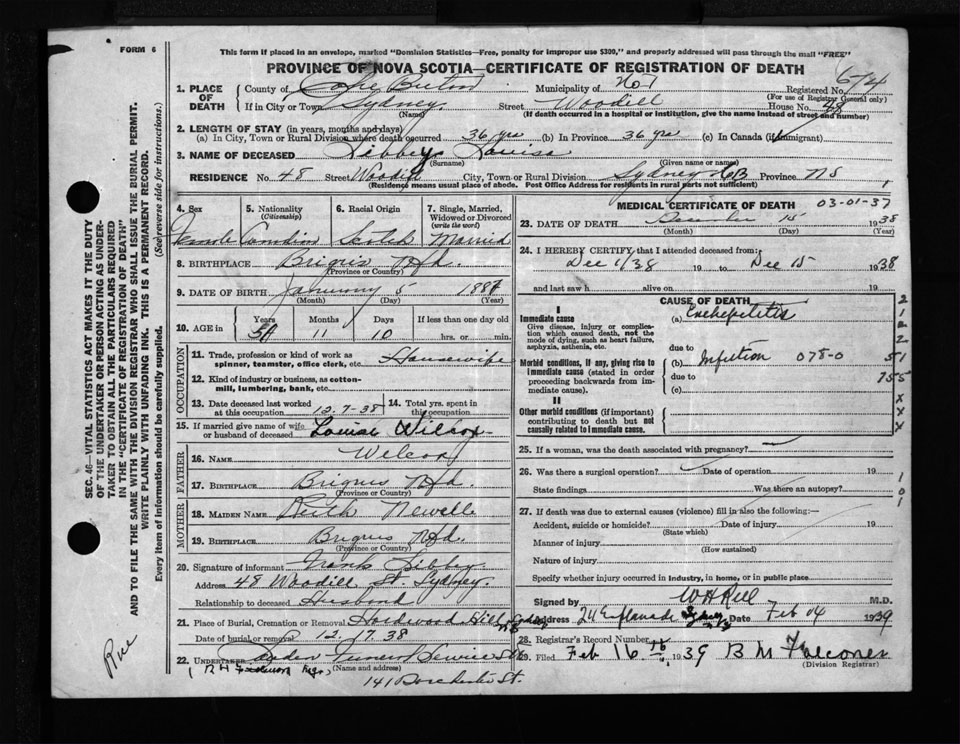 FORM 6
This form if placed in an envelope, marked "Dominion Statistics—Free, penalty for improper use $300," and properly addressed will pass through the mail "FREE"
PROVINCE OF NOVA SCOTIA—CERTIFICATE OF REGISTRATION OF DEATH
SEC. 46—VITAL STATISTICS ACT MAKES IT THE DUTY
OF THE UNDERTAKER OR PERSON ACTING AS UNDER-
TAKER TO OBTAIN ALL THE PARTICULARS REQUIRED
IN THE "CERTIFICATE OF REGISTRATION OF DEATH"
AND TO FILE THE SAME WITH THE DIVISION REGISTRAR WHO SHALL ISSUE THE BURIAL PERMIT.
WRITE PLAINLY WITH UNFADING INK. THIS IS A PERMANENT RECORD.
Every item of Information should be carefully supplied. (See reverse side for instructions.)
1. PLACE OF DEATH
County of Cape Breton Municipality of Registered No. 674
(For use of Registrar General only)
If in City or Town Sydney Street Woodill House No. 48
(Name) (If death occurred in a hospital or institution, give the name instead of street and number)
2. LENGTH OF STAY (in years, months and days)
(a) In City, Town or Rural Division where death occurred 36 yrs (b) In Province 36 yrs (c) In Canada (if immigrant)
3. NAME OF DECEASED Libbey Louisa
(Surname) (Given name or names)
RESIDENCE No. 48 Street Woodill City, Town or Rural Division Sydney CB Province NS
(Residence means usual place of abode. Post Office Address for residents in rural parts not sufficient)
4. Sex 5. Nationality (Citizenship) 6. Racial Origin 7. Single, Married, Widowed or Divorced (write the word)
Female Canadian Scotch Married
8. BIRTHPLACE Brigus Nfd.
(Province or Country)
9. DATE OF BIRTH January 5 1884
(Month) (Day) (Year)
10. AGE in Years Months Days If less than one day old
11 10 hrs. or min.
OCCUPATION
11. Trade, profession or kind of work as spinner, teamster, office clerk, etc. Housewife
12. Kind of industry or business, as cotton-mill, lumbering, bank, etc.
13. Date deceased last worked at this occupation 12-7-38 14. Total yrs. spent in this occupation
15. If married give name of wife or husband of deceased Louise Wilcox
FATHER
16. NAME Welcox
17. BIRTHPLACE Brigus Nfd.
(Province or Country)
MOTHER
18. MAIDEN NAME Newell
19. BIRTHPLACE Brigus Nfd.
(Province or Country)
20. Signature of informant Frank Libbey
Address 48 Woodill St Sydney.
Relationship to deceased Husband
21. Place of Burial, Cremation or Removal Hardwood Hill Sydney
Date of burial or removal 12.17.38
22. UNDERTAKER Funeral Service
(Name and address)
141 Dorchester St.
MEDICAL CERTIFICATE OF DEATH 03-01-37
23. DATE OF DEATH December 15 1938
(Month) (Day)
24. I HEREBY CERTIFY that I attended deceased from:
Dec 1/38 19 to Dec 15 1938
and last saw h alive on 19
CAUSE OF DEATH
I
Immediate cause (a) Enchepelitis
Give disease, injury or complication which caused death, not the mode of dying, such as heart failure, asphyxia, asthenia, etc.
due to
Morbid conditions, if any, giving rise to immediate cause (stated in order proceeding backwards from immediate cause). (b) Infection 078-0
due to
(c)
II
Other morbid conditions (if important) contributing to death but not causally related to immediate cause.
2
1
2
2
51
755
x
x
x
25. If a woman, was the death associated with pregnancy?
26. Was there a surgical operation? Date of operation 19
State findings Was there an autopsy?
1
0
1
27. If death was due to external causes (violence) fill in also the following:—
Accident, suicide or homicide? Date of injury 19
(State which)
Manner of injury
(How sustained)
Nature of injury
Specify whether injury occurred in industry, in home, or in public place
Signed by M.D.
Address 24 Esplanade Sydney Date Feb 04 1939
28. Registrar's Record Number
29. Filed Feb 16 1939 B M Falconer
(Division Registrar)